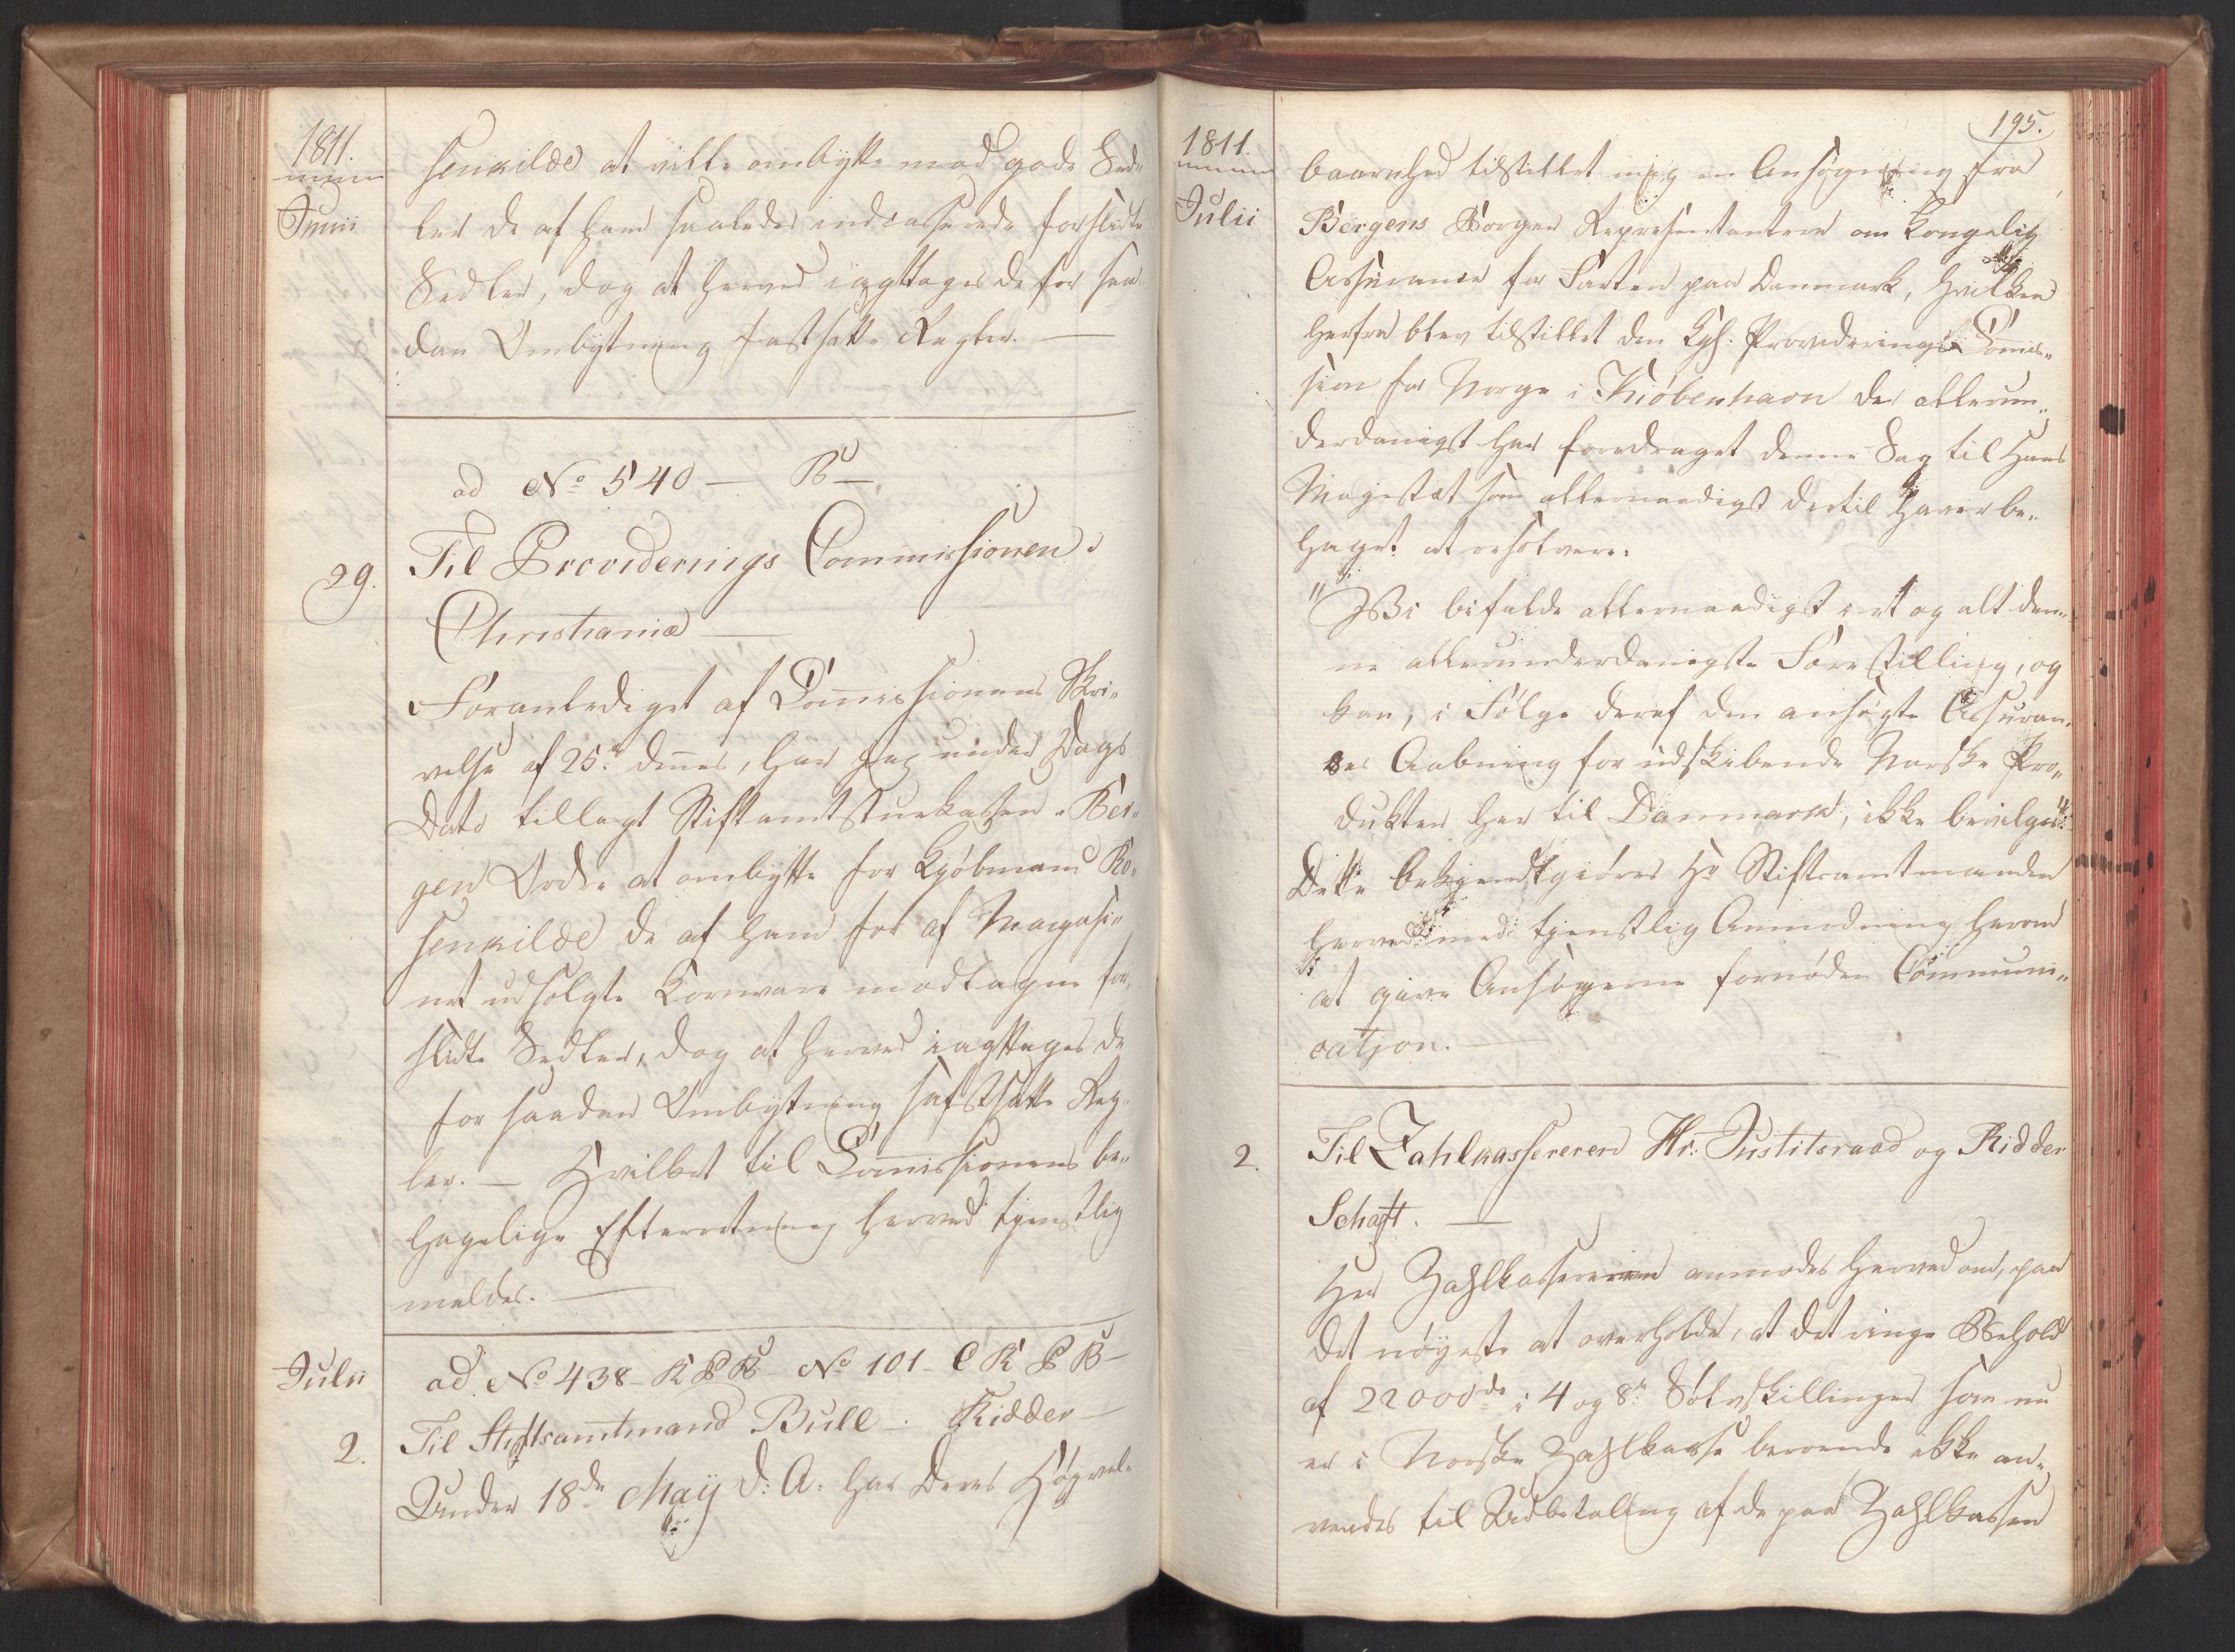 1811.
Junii
senkilde at ville ombytte mod gode Sed-
ler de af ham saaledes indcasserede forslidte
Sedler, dog at herved iagttages de for saa-
dan Ombytning fastsatte Regler. —
ad No 540 — B —
29.
Til Provideringss Commissionen i
Christiania —
Foranlediget af Commissionens Skri„
velse af 25de dennes, har jeg under Dags
Dato tillagt Stiftamtstuekassen i Ber„
gen Ordre at ombytte for Kjøbmand Ro„
senkilde de af ham for af Magasi„
net udsolgte Kornvare modtagne for„
slidte Sedler, dog at herved iagttages de
for saadan Ombytning fastsatte Reg„
ler. — Hvilket til Commissionens be„
hagelige Efterretning herved tjenstlig
meldes. —
Julii
ad No 438 - K P B - No 101 - C K P B —
2.
Til Stiftsamtmand Bull — Ridder —
Under 18de Maij d: A: har Deres Høivel-
1811.
Julii
195.
baarenhed tilstillet mig en Ansøgning fra
Bergens Borger Repræsentantere om Kongelig
Assurance for Farten paa Danmark, hvilken
herfra blev tilstillet den Kgl. Providerings Commis„
sion for Norge i Kiøbenhavn der allerun„
derdanigst har foredraget denne Sag til Hans
Majestæt som allernaadigst dertil haver be„
haget at resolvere:
"Vi bifalde allernaadigst i et og alt den„
ne allerunderdanigste Forestilling, og
kan, i Følge deraf den ansøgte Assuran„
ces Aabning for udskibende Norske Pro„
dukter her til Danmark, ikke bevilges"
Dette bekjendtgiøres Hr Stiftsamtmanden
herved med tjenstlig Anmodning herom
at give Ansøgerne fornøden Communi„
cation. —
2.
Til Zahlkassereren Hr: Justitsraad og Ridder
Schaft. —
Her Zahlkassereren anmodes herved om, paa
det nøyeste at overholde, at det ringe Behold
af 22000 rd i 4 og 8 s. Sølvskillinger som nu
er i Norske Zahlkasse beroende ikke an„
vendes til Udbetaling af de paa Zahlkassen